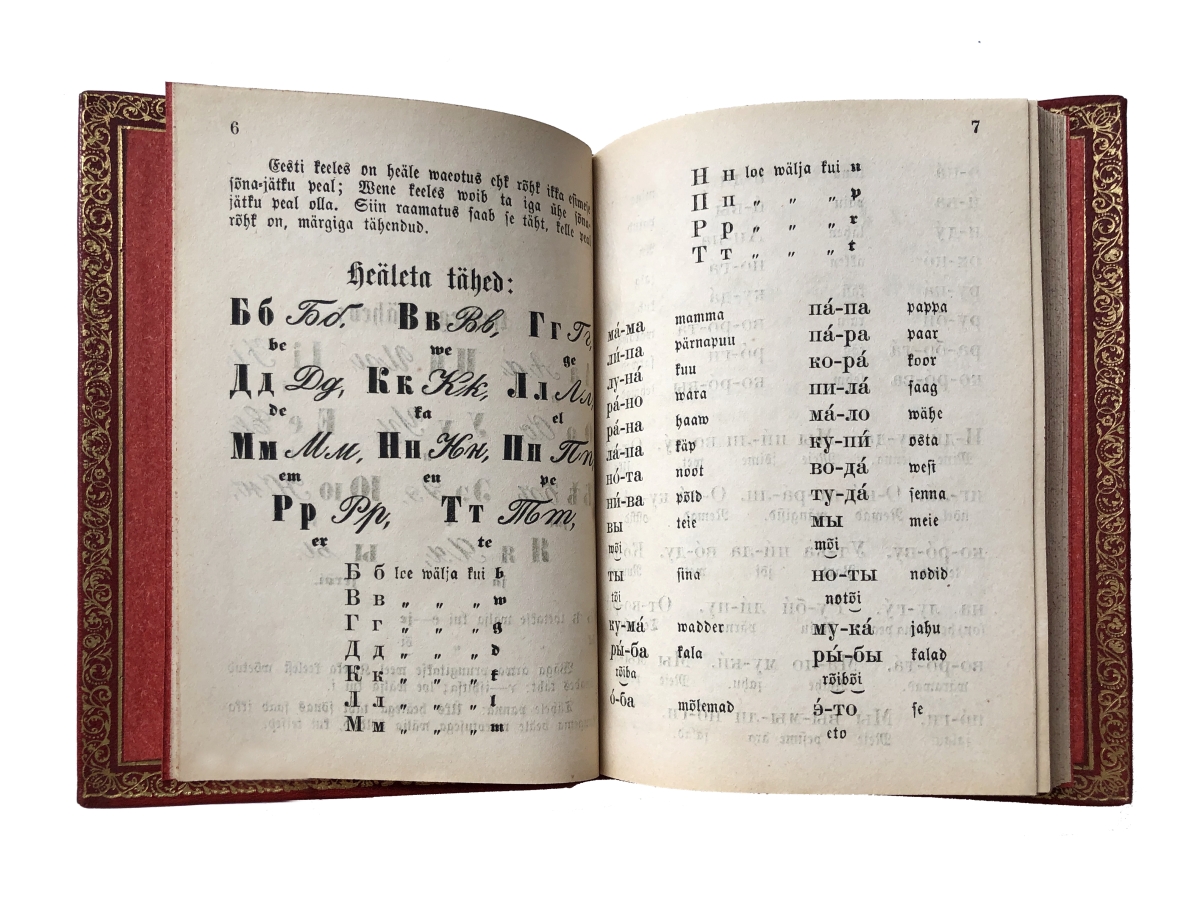 6
Eesti keeles on heäle waeotus ehk rõhk ikka esimese
sõna-jätku peal; Wene keeles woib ta iga ühe sõna-
jätku peal olla. Siin raamatus saab se täht, kelle peal
rõhk on, märgiga tähendud.
Heäleta tähed:
Бб Бб. Вв Вв, Гг Гг,
be we ge
Дд Дд, Кк Кк, Лл Лл,
de ka el
Мм Мм, Нн Нн, Пп Пп
em en pe
Рр Рр, Тт Тт,
er te
Б б loe wälja kui b
В в „ „ „ w
Г г „ „ „ g
Д д „ „ „ d
К к „ „ „ k
Л л „ „ „ l
М м „ „ „ m
7
Н н loe wälja kui n
П п „ „ „ p
Р р „ „ „ r
Т т „ „ „ t
ма́-ма mamma
ли́-па pärnapuu
лу-на́ kuu
ра́-но wara
ра́-на haaw
ла́-па käp
но́-та noot
ни́-ва põld
вы teie
wõi
ты sina
tõi
ку-ма́ wadder
ры́-ба kala
rõiba
о́-ба mõlemad
па́-па pappa
па́-ра paar
ко-ра́ koor
пи-ла́ saag
ма́-ло wähe
ку-пи́ osta
во-да́ wesi
ту-да́ senna
мы meie
mõi
но-ты nodid
notõi
му-ка́ jahu
ры́-бы kalad
rõibõi
э́-то se
eto